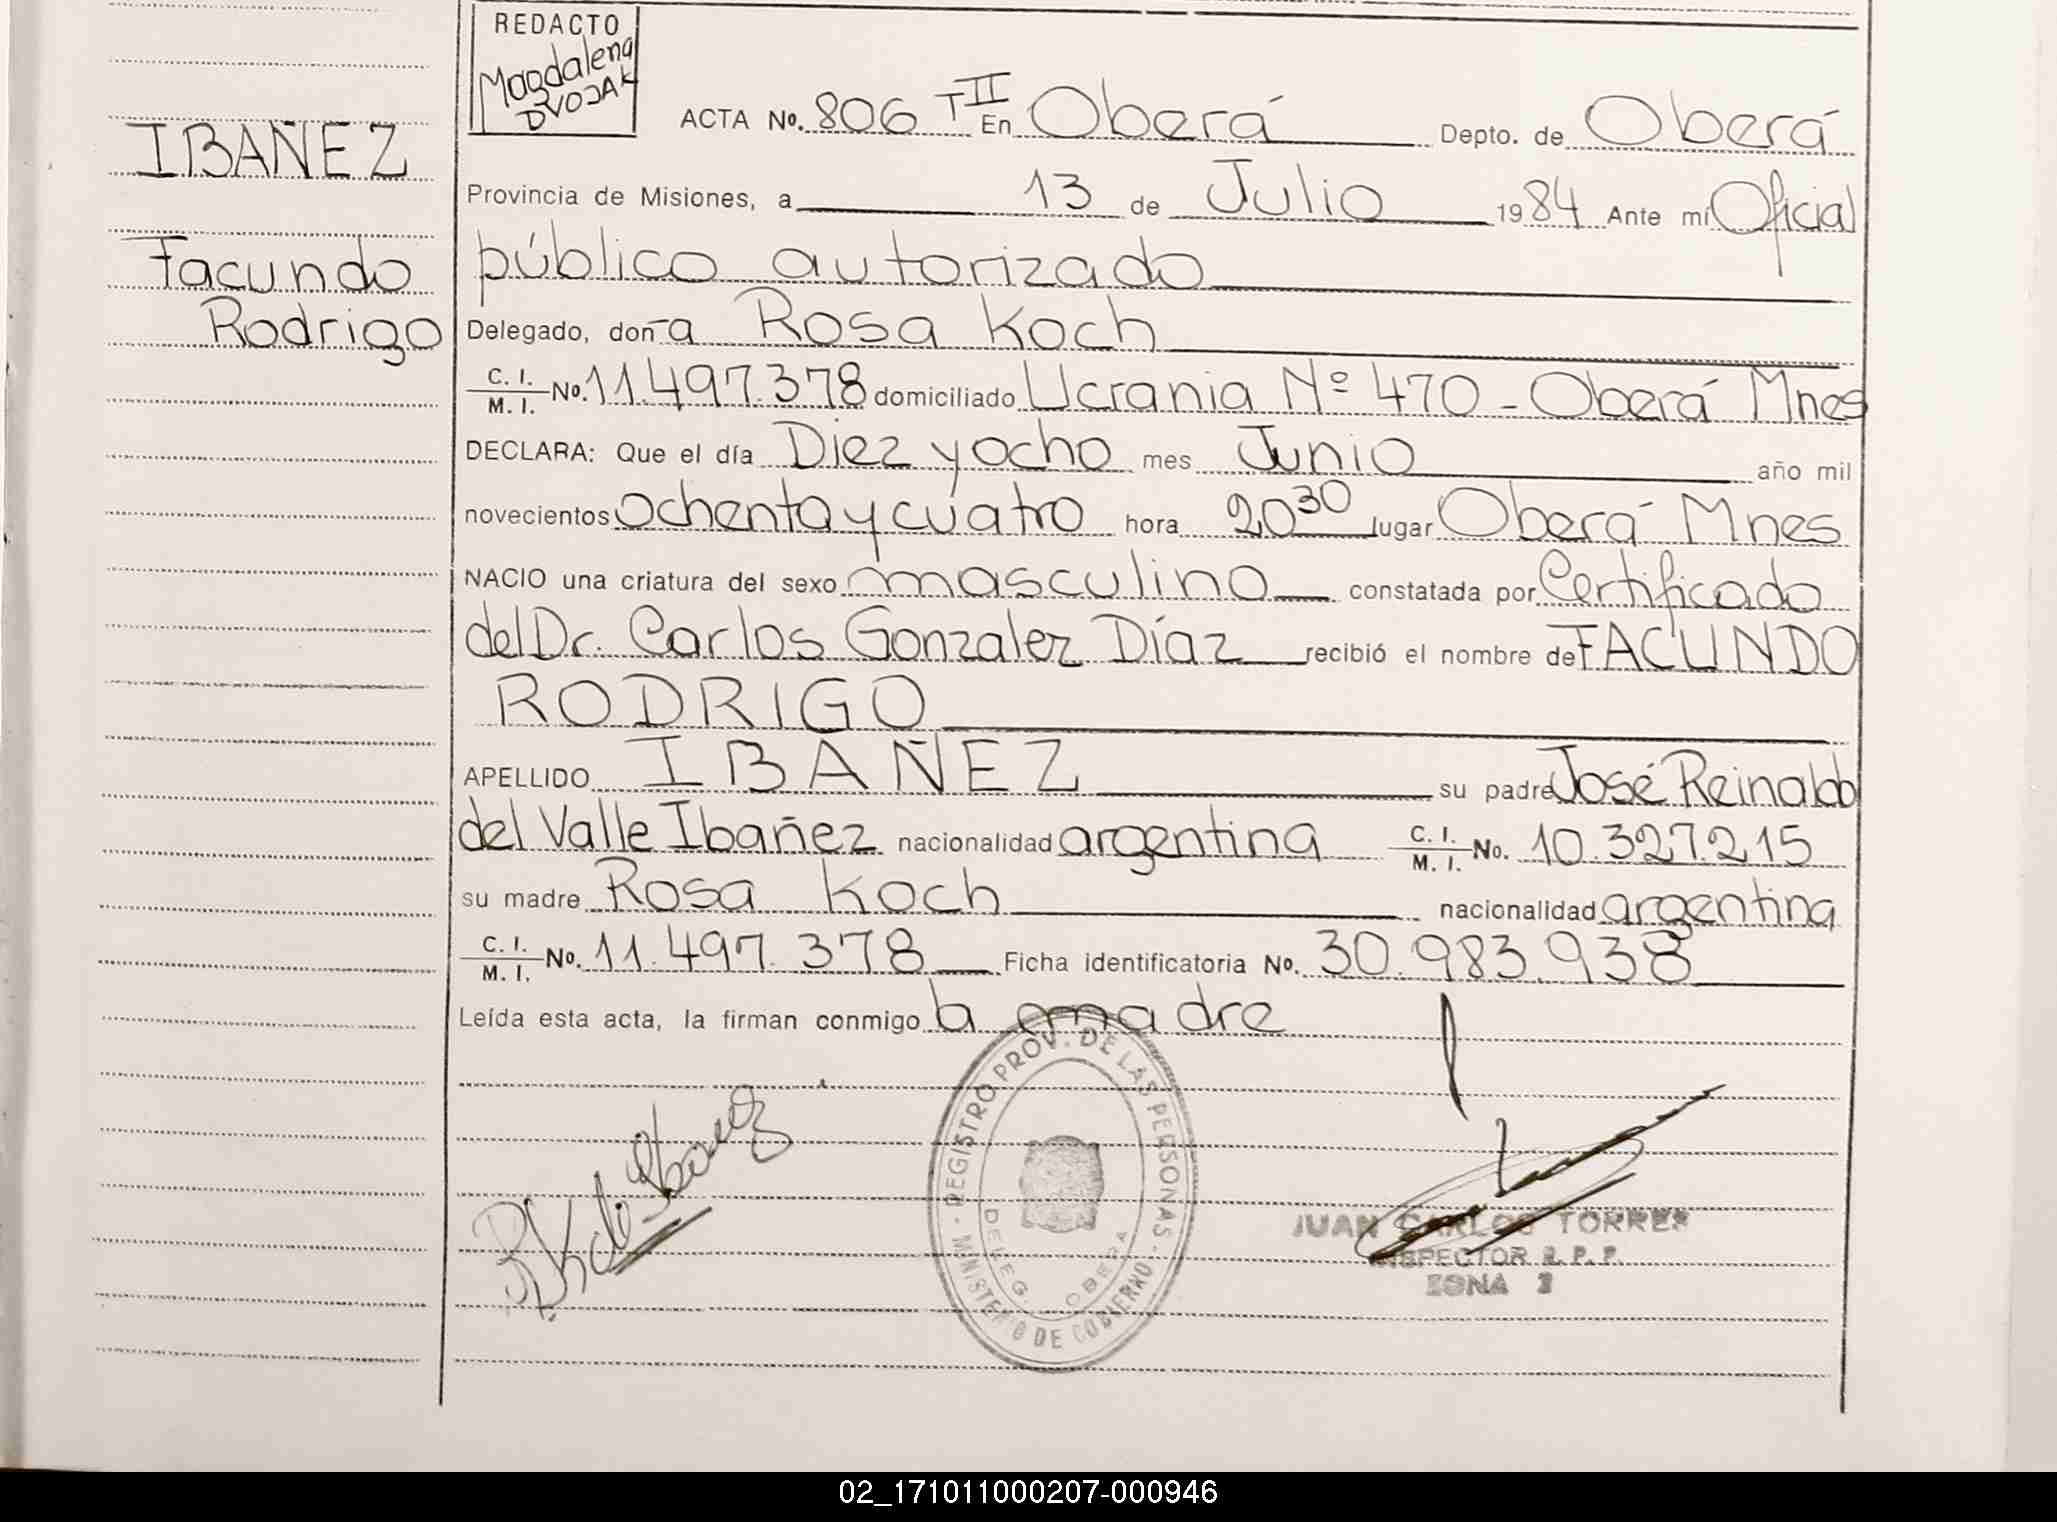 REDACTO
Magdalena
DVOJAK
ACTA No. 806 T II En Oberá Depto. de Oberá
IBAÑEZ
Provincia de Misiones, a 13 de Julio 1984 Ante mí Oficial
Facundo
público autorizado
Rodrigo
Delegado, don-a Rosa Koch
C. I.
M. I. No. 11.497.378 domiciliado Ucrania Nº 470 - Oberá Mnes
DECLARA: Que el día Diez y ocho mes Junio año mil
novecientos ochenta y cuatro hora 20 30 lugar Oberá Mnes
NACIO una criatura del sexo masculino constatada por Certificado
del Dr. Carlos Gonzalez Díaz recibió el nombre de FACUNDO
RODRIGO
APELLIDO IBAÑEZ su padre José Reinaldo
del Valle Ibañez nacionalidad argentina C. I. M. I. No. 10.327.215
su madre Rosa Koch nacionalidad argentina
C. I.
M. I. No. 11.497.378 Ficha identificatoria No. 30.983.938
Leída esta acta, la firman conmigo la madre
REGISTRO PROV. DE LAS PERSONAS
MINISTERIO DE GOBIERNO
DELEG. OBERA
JUAN CARLOS TORRES
INSPECTOR R. P. P.
ZONA
02_171011000207-000946